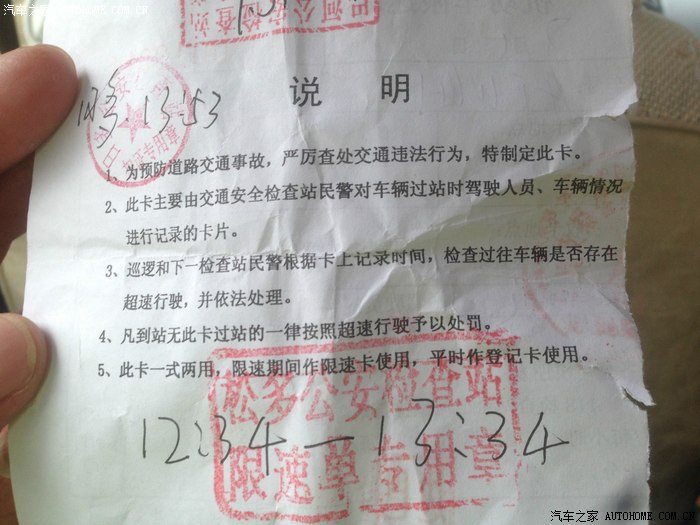 汽车之家 AUTOHOME.COM.CN
公安检查
说 明
13:53
专用章
1、为预防道路交通事故，严厉查处交通违法行为，特制定此卡。
2、此卡主要由交通安全检查站民警对车辆过站时驾驶人员、车辆情况
进行记录的卡片。
3、巡逻和下一检查站民警根据卡上记录时间，检查过往车辆是否存在
超速行驶，并依法处理。
4、凡到站无此卡过站的一律按照超速行驶予以处罚。
5、此卡一式两用，限速期间作限速卡使用，平时作登记卡使用。
松多公安检查站
限速单专用章
12:34—13:34
汽车之家 AUTOHOME.COM.CN